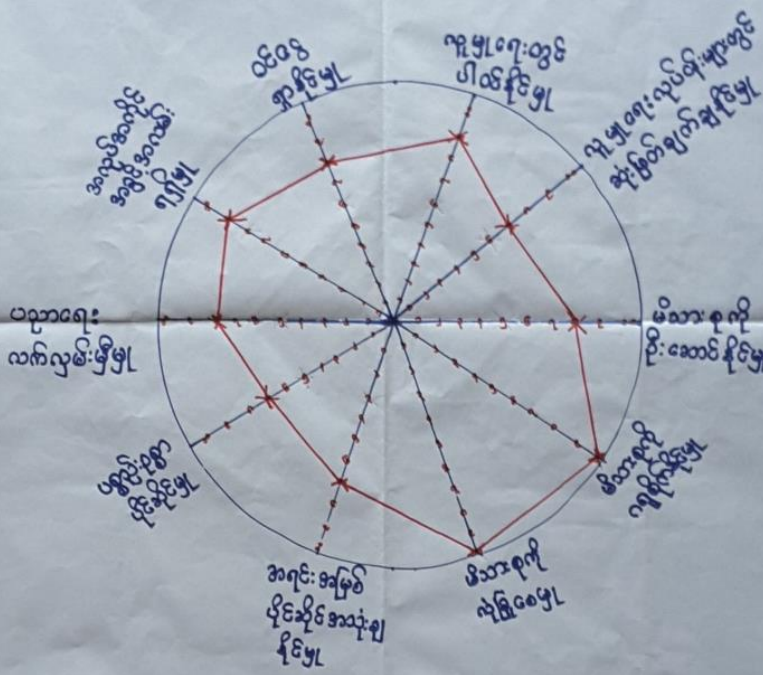 ဝင်ငွေ
ရှာနိုင်မှု
လူမှုရေးတွင်
ပါဝင်နိုင်မှု
လူမှုရေးလုပ်ငန်းများတွင်
ဆုံးဖြတ်ချက်ချနိုင်မှု
မိသားစုကို
ဦးဆောင်နိုင်မှု
မိသားစုကို
ဂရုစိုက်နိုင်မှု
မိသားစုကို
အရင်းအမြစ်
ပိုင်ဆိုင်အသုံးချ
နိုင်မှု
ပစ္စည်းဥစ္စာ
ပိုင်ဆိုင်မှု
ပညာရေး
လက်လှမ်းမှီမှု
အလုပ်အကိုင်
အခွင့်အလမ်း
ရရှိမှု